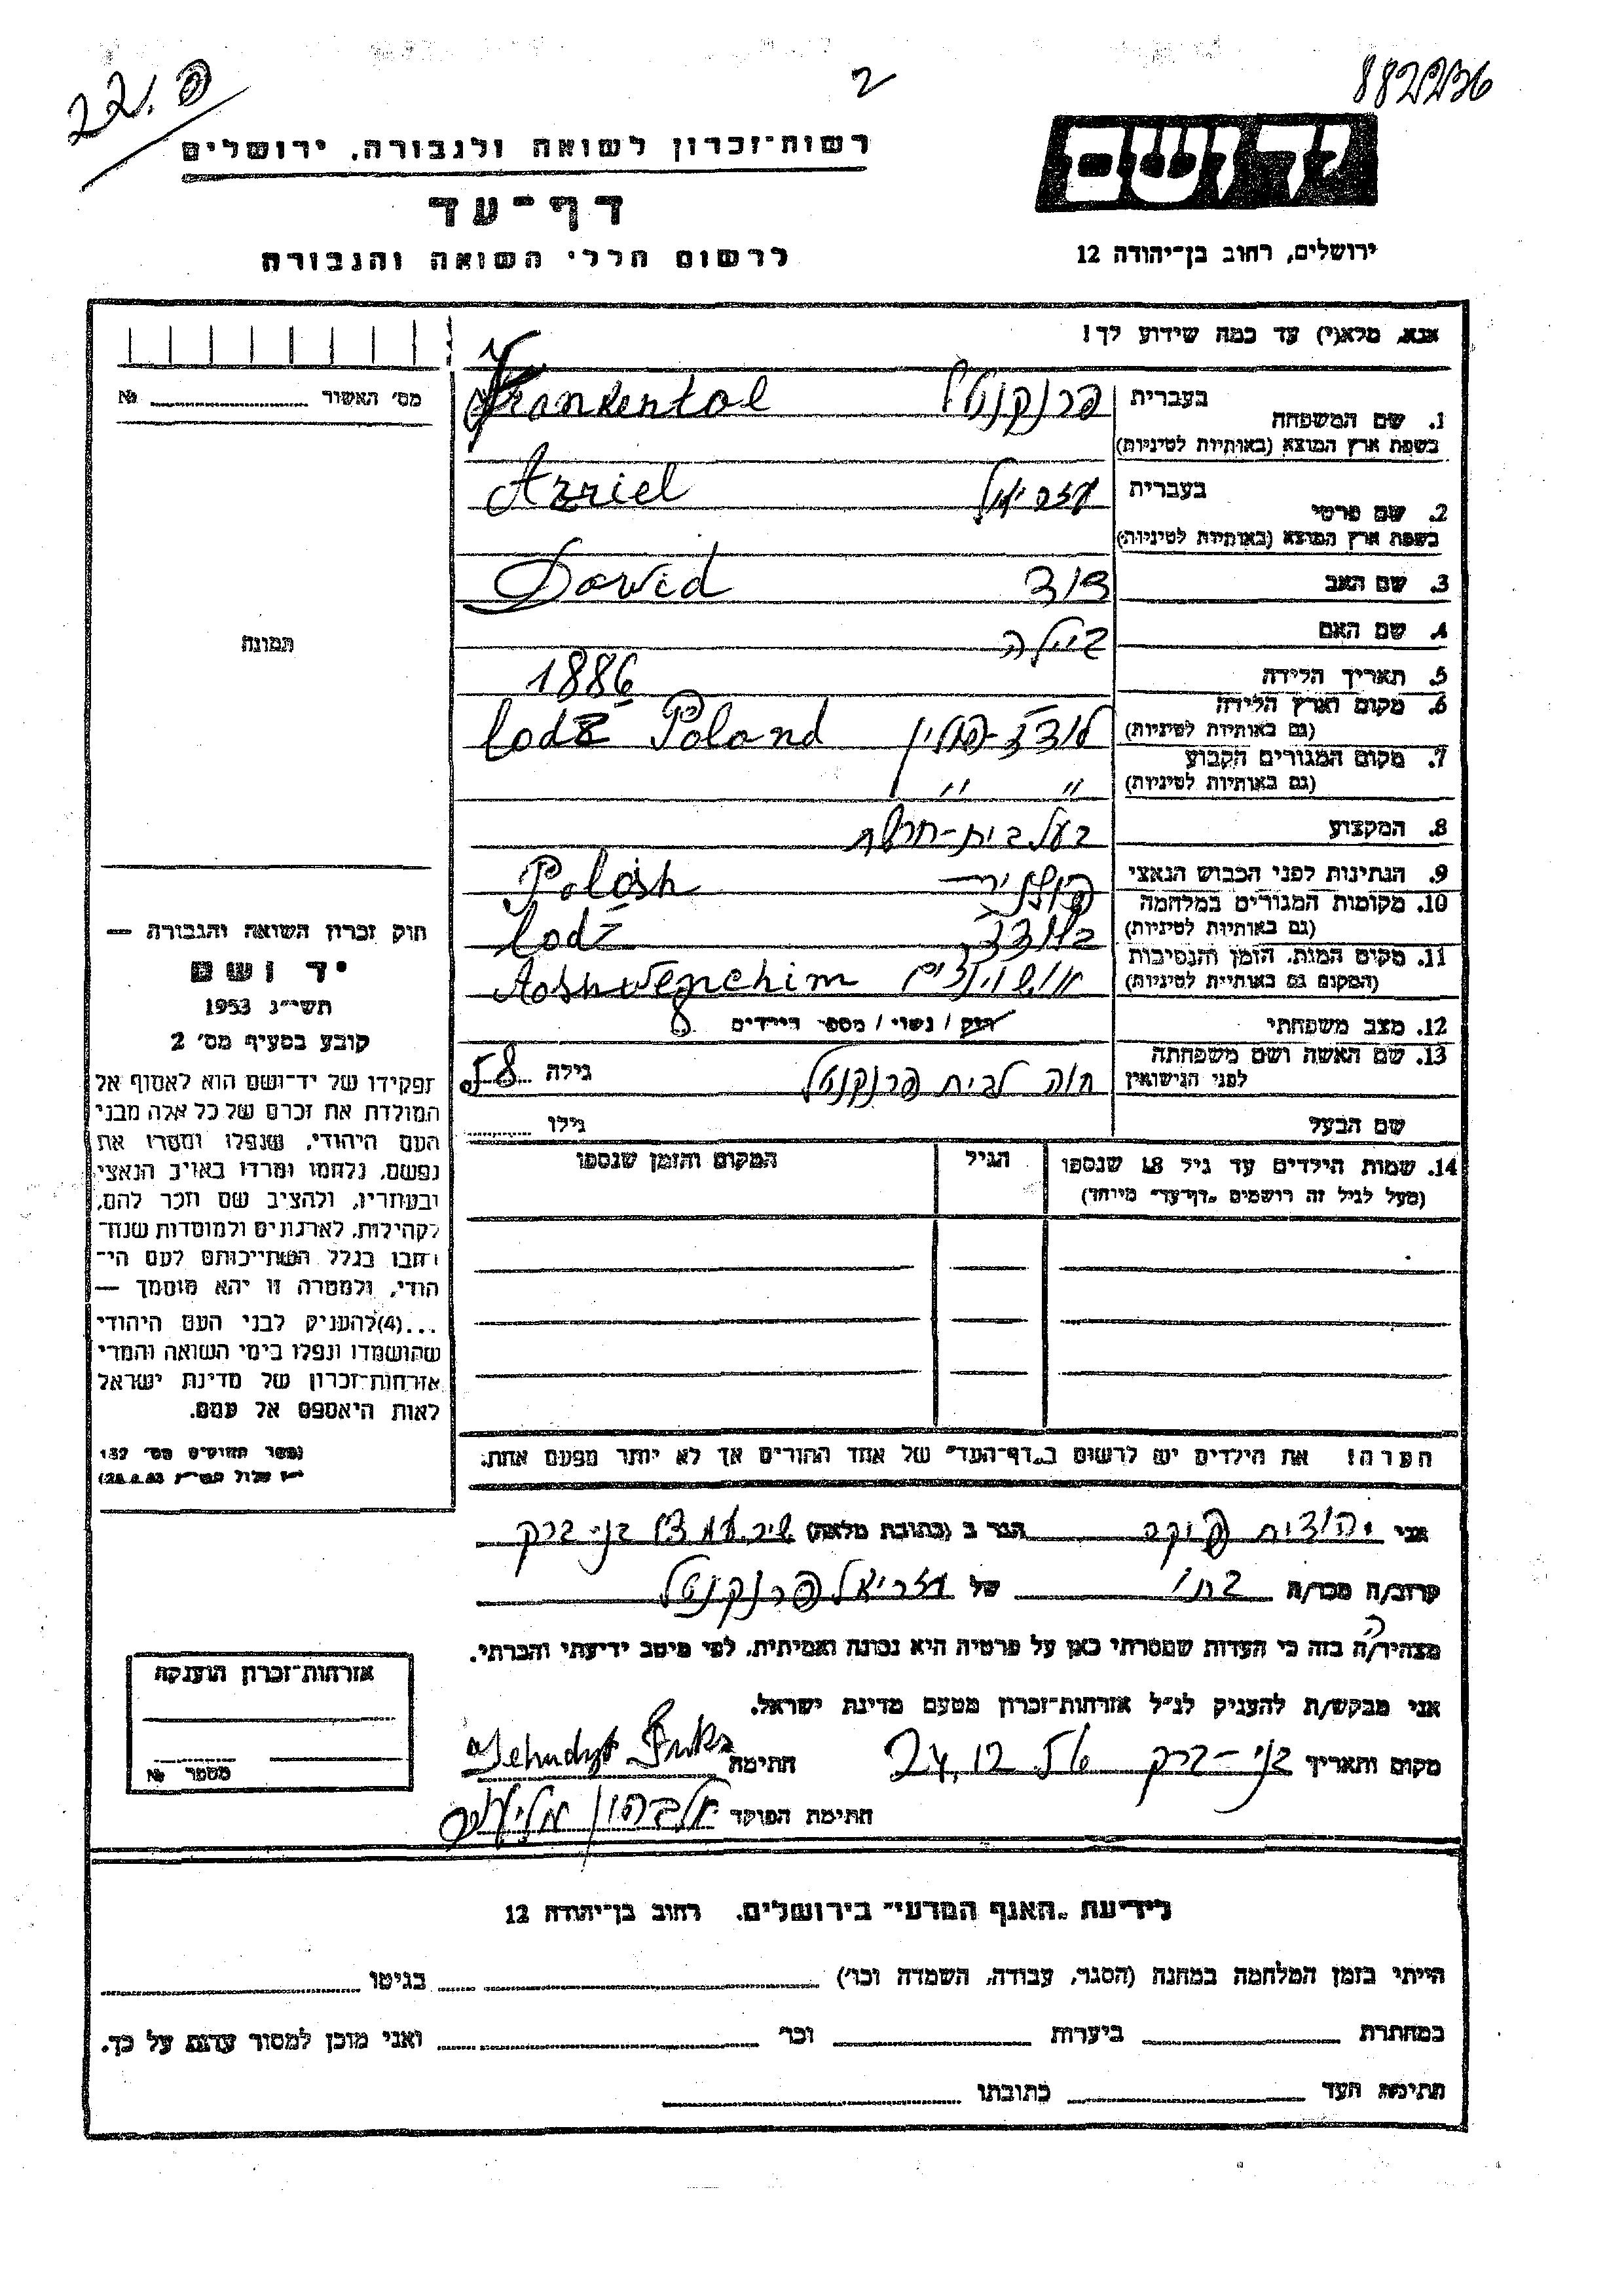 22. פ
2
882236
יד ושם
רשות־זכרון לשואה ולגבורה, ירושלים
דף־עד
לרשום חללי השואה והגבורה
ירושלים, רחוב בן־יהודה 12
אנא, מלא(י) עד כמה שידוע לך!
מס׳ האשור № 
1. שם המשפחה בעברית פרנקנטל Frankental
בשפת ארץ המוצא (באותיות לטיניות)
2. שם פרטי בעברית עזריאל Azriel
בשפת ארץ המוצא (באותיות לטיניות)
3. שם האב דוד Dawid
4. שם האם ביילה
תמונה
5. תאריך הלידה 1886
6. מקום וארץ הלידה לודז׳-פולין Lodz Poland
(גם באותיות לטיניות)
7. מקום המגורים הקבוע " "
(גם באותיות לטיניות)
8. המקצוע בעל בית-חרושת
9. הנתינות לפני הכבוש הנאצי פולנית Polish
10. מקומות המגורים במלחמה בלודז׳ Lodz
(גם באותיות לטיניות)
11. מקום המות, הזמן והנסיבות אושוינצים Aoshwenchim
(המקום גם באותיות לטיניות)
12. מצב משפחתי רווק / נשוי / מספר הילדים 8
13. שם האשה ושם משפחתה לפני הנישואין חוה לבית פרנקנטל גילה 58
שם הבעל גילו
14. שמות הילדים עד גיל 18 שנספו הגיל המקום והזמן שנספו
(מעל לגיל זה רושמים „דף־עד” מיוחד)
חוק זכרון השואה והגבורה —
יד ושם
תשי״ג 1953
קובע בסעיף מס׳ 2
תפקידו של יד־ושם הוא לאסוף אל
המולדת את זכרם של כל אלה מבני
העם היהודי, שנפלו ומסרו את
נפשם, נלחמו ומרדו באויב הנאצי
ובעוזריו, ולהציב שם וזכר להם,
לקהילות, לארגונים ולמוסדות שנח־
רבו בגלל השתייכותם לעם הי־
הודי, ולמטרה זו יהא מוסמך —
...(4)להעניק לבני העם היהודי
שהושמדו ונפלו בימי השואה והמרי
אזרחות־זכרון של מדינת ישראל
לאות היאספם אל עמם.
(ספר החוקים מס׳ 132
הערה! את הילדים יש לרשום ב„דף־העד” של אחד ההורים אך לא יותר מפעם אחת.
אני יהודית פוקס הגר ב (כתובת מלאה) בני-ברק
קרוב/ה מכר/ה בתו של עזריאל פרנקנטל
מצהיר/ה בזה כי העדות שמסרתי כאן על פרטיה היא נכונה ואמיתית, לפי מיטב ידיעתי והכרתי.
אני מבקש/ת להעניק לנ״ל אזרחות־זכרון מטעם מדינת ישראל.
מקום ותאריך בני-ברק 24.12 חתימה Jehudyt Fuks
חתימת הפוקד
אזרחות־זכרון הוענקה
מספר №
לידיעת „האגף המדעי” בירושלים, רחוב בן־יהודה 12
הייתי בזמן המלחמה במחנה (הסגר, עבודה, השמדה וכו׳) בגיטו
במחתרת ביערות וכו׳ ואני מוכן למסור עדות על כך.
חתימת העד כתובתו